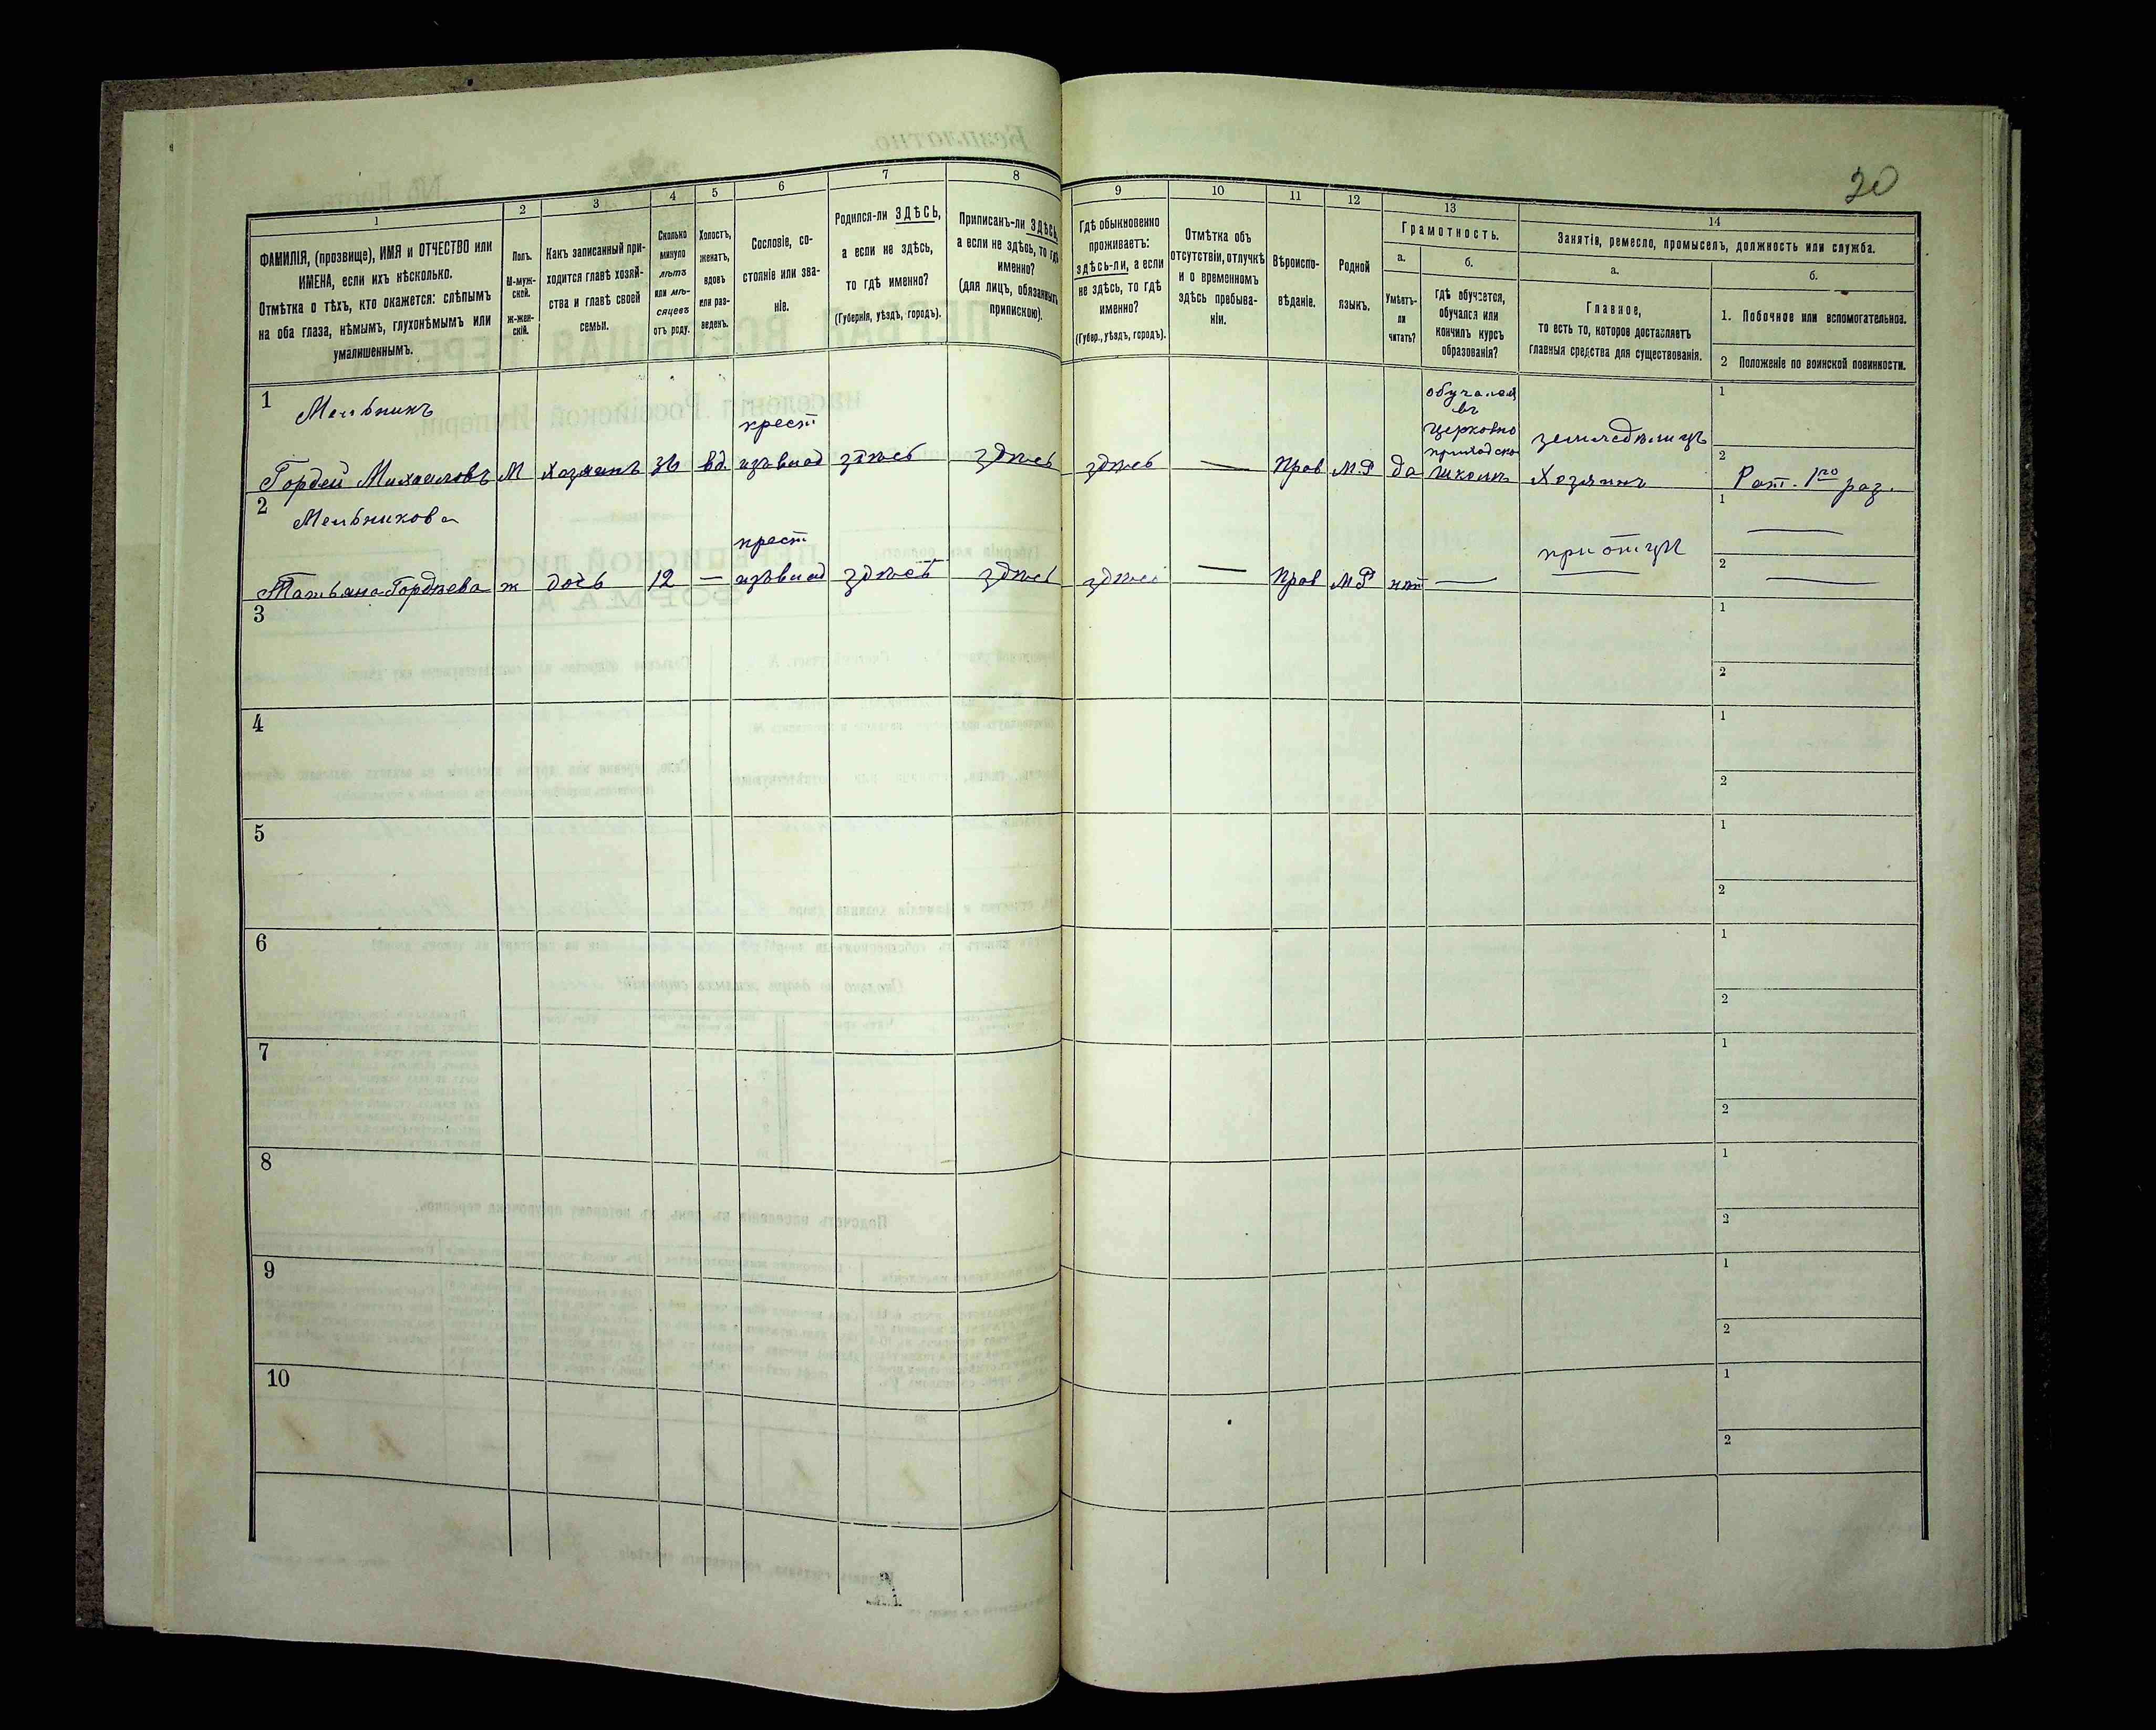 20
1
2
3
4
5
6
7
8
9
10
11
12
13
14
ФАМИЛІЯ, (прозвище), ИМЯ и ОТЧЕСТВО или
ИМЕНА, если ихъ нѣсколько.
Отмѣтка о тѣхъ, кто окажется: слѣпымъ
на оба глаза, нѣмымъ, глухонѣмымъ или
умалишеннымъ.
Полъ.
М-муж-
ской.
Ж-жен-
скій.
Какъ записанный при-
ходится главѣ хозяй-
ства и главѣ своей
семьи.
Сколько
минуло
лѣтъ
или мѣ-
сяцевъ
отъ роду.
Холостъ,
женатъ,
вдовъ
или раз-
веденъ.
Сословіе, со-
стояніе или зва-
ніе.
Родился-ли ЗДѢСЬ,
а если не здѣсь,
то гдѣ именно?
(Губернія, уѣздъ, городъ).
Приписанъ-ли ЗДѢСЬ,
а если не здѣсь, то гдѣ
именно?
(для лицъ, обязанныхъ
припискою).
Гдѣ обыкновенно
проживаетъ:
здѣсь-ли, а если
не здѣсь, то гдѣ
именно?
(Губер., уѣздъ, городъ).
Отмѣтка объ
отсутствіи, отлучкѣ
и о временномъ
здѣсь пребыва-
ніи.
Вѣроиспо-
вѣданіе.
Родной
языкъ.
Грамотность.
а.
Умѣетъ-
ли
читать?
б.
гдѣ обучается,
обучался или
кончилъ курсъ
образованія?
Занятія, ремесло, промыселъ, должность или служба.
а.
Главное,
то есть то, которое доставляетъ
главныя средства для существованія.
б.
1. Побочное или вспомогательное.
2 Положеніе по воинской повинности.
1
Мельникъ
Гордей Михаиловъ М Хозяинъ 36 вд.
крест
изъ влад здѣсь здѣсь здѣсь — Прав М.Р да
обучался
въ
церковно
приходско
школѣ
земледѣлецъ
Хозяинъ
1
2
Рат. 1го раз.
2
Мельникова
Татьяна Гордѣева ж дочь 12 —
крест
изъ влад здѣсь здѣсь здѣсь — Прав М Р нѣт —
при отцѣ
1
—
2
—
3
1
2
4
1
2
5
1
2
6
1
2
7
1
2
8
1
2
9
1
2
10
1
2